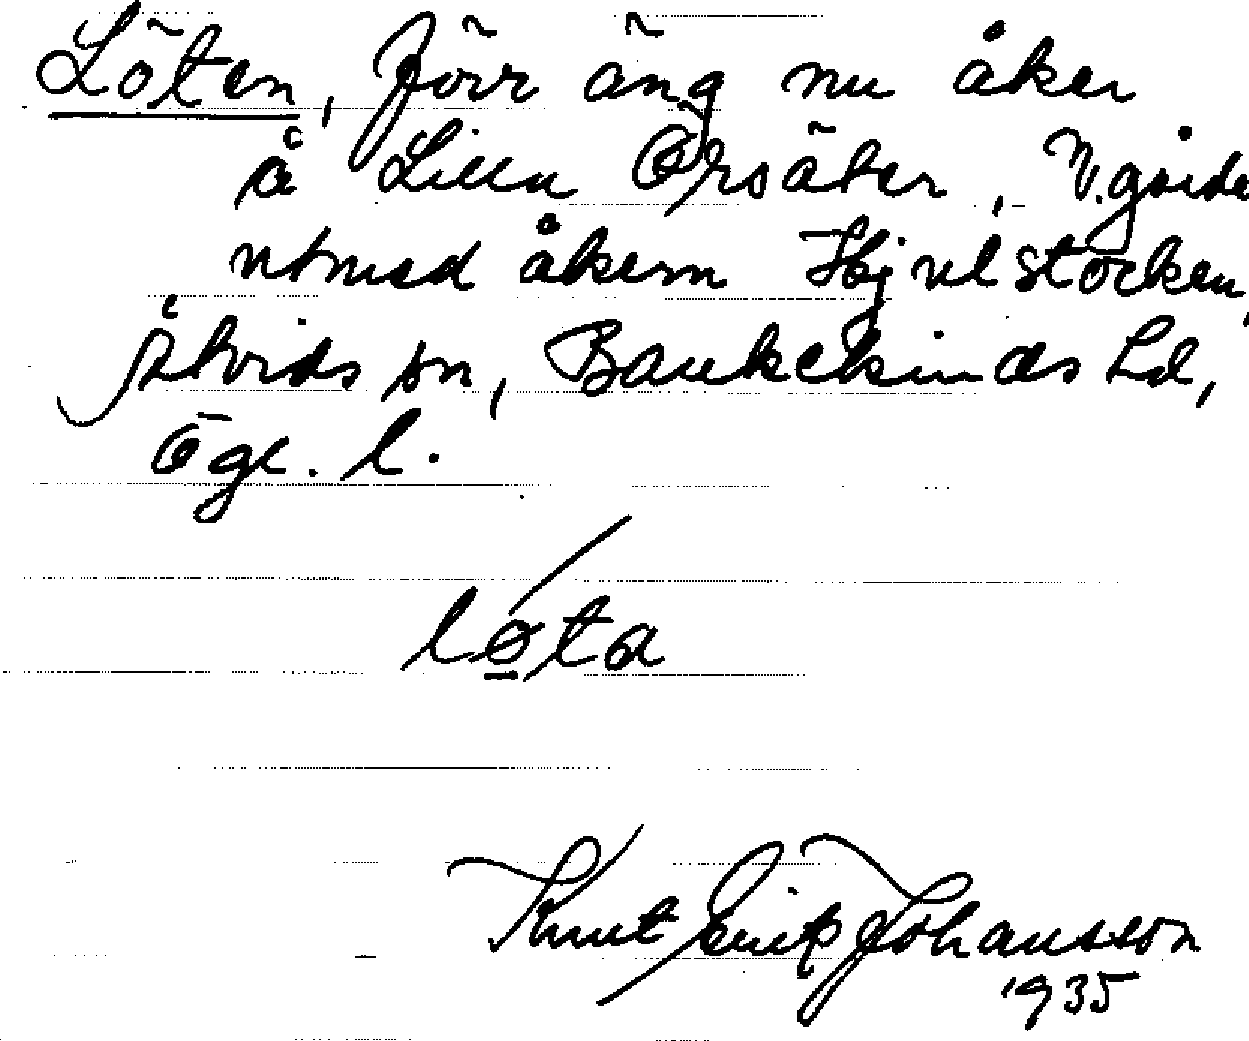 Löten, förr äng nu åker
å Lilla Örsäter, N. gårde
utmed åkern Hjulstocken,
Åtvids sn, Bankekinds hd,
Ögl. l.
løta
Knut Erik Johansson
1935